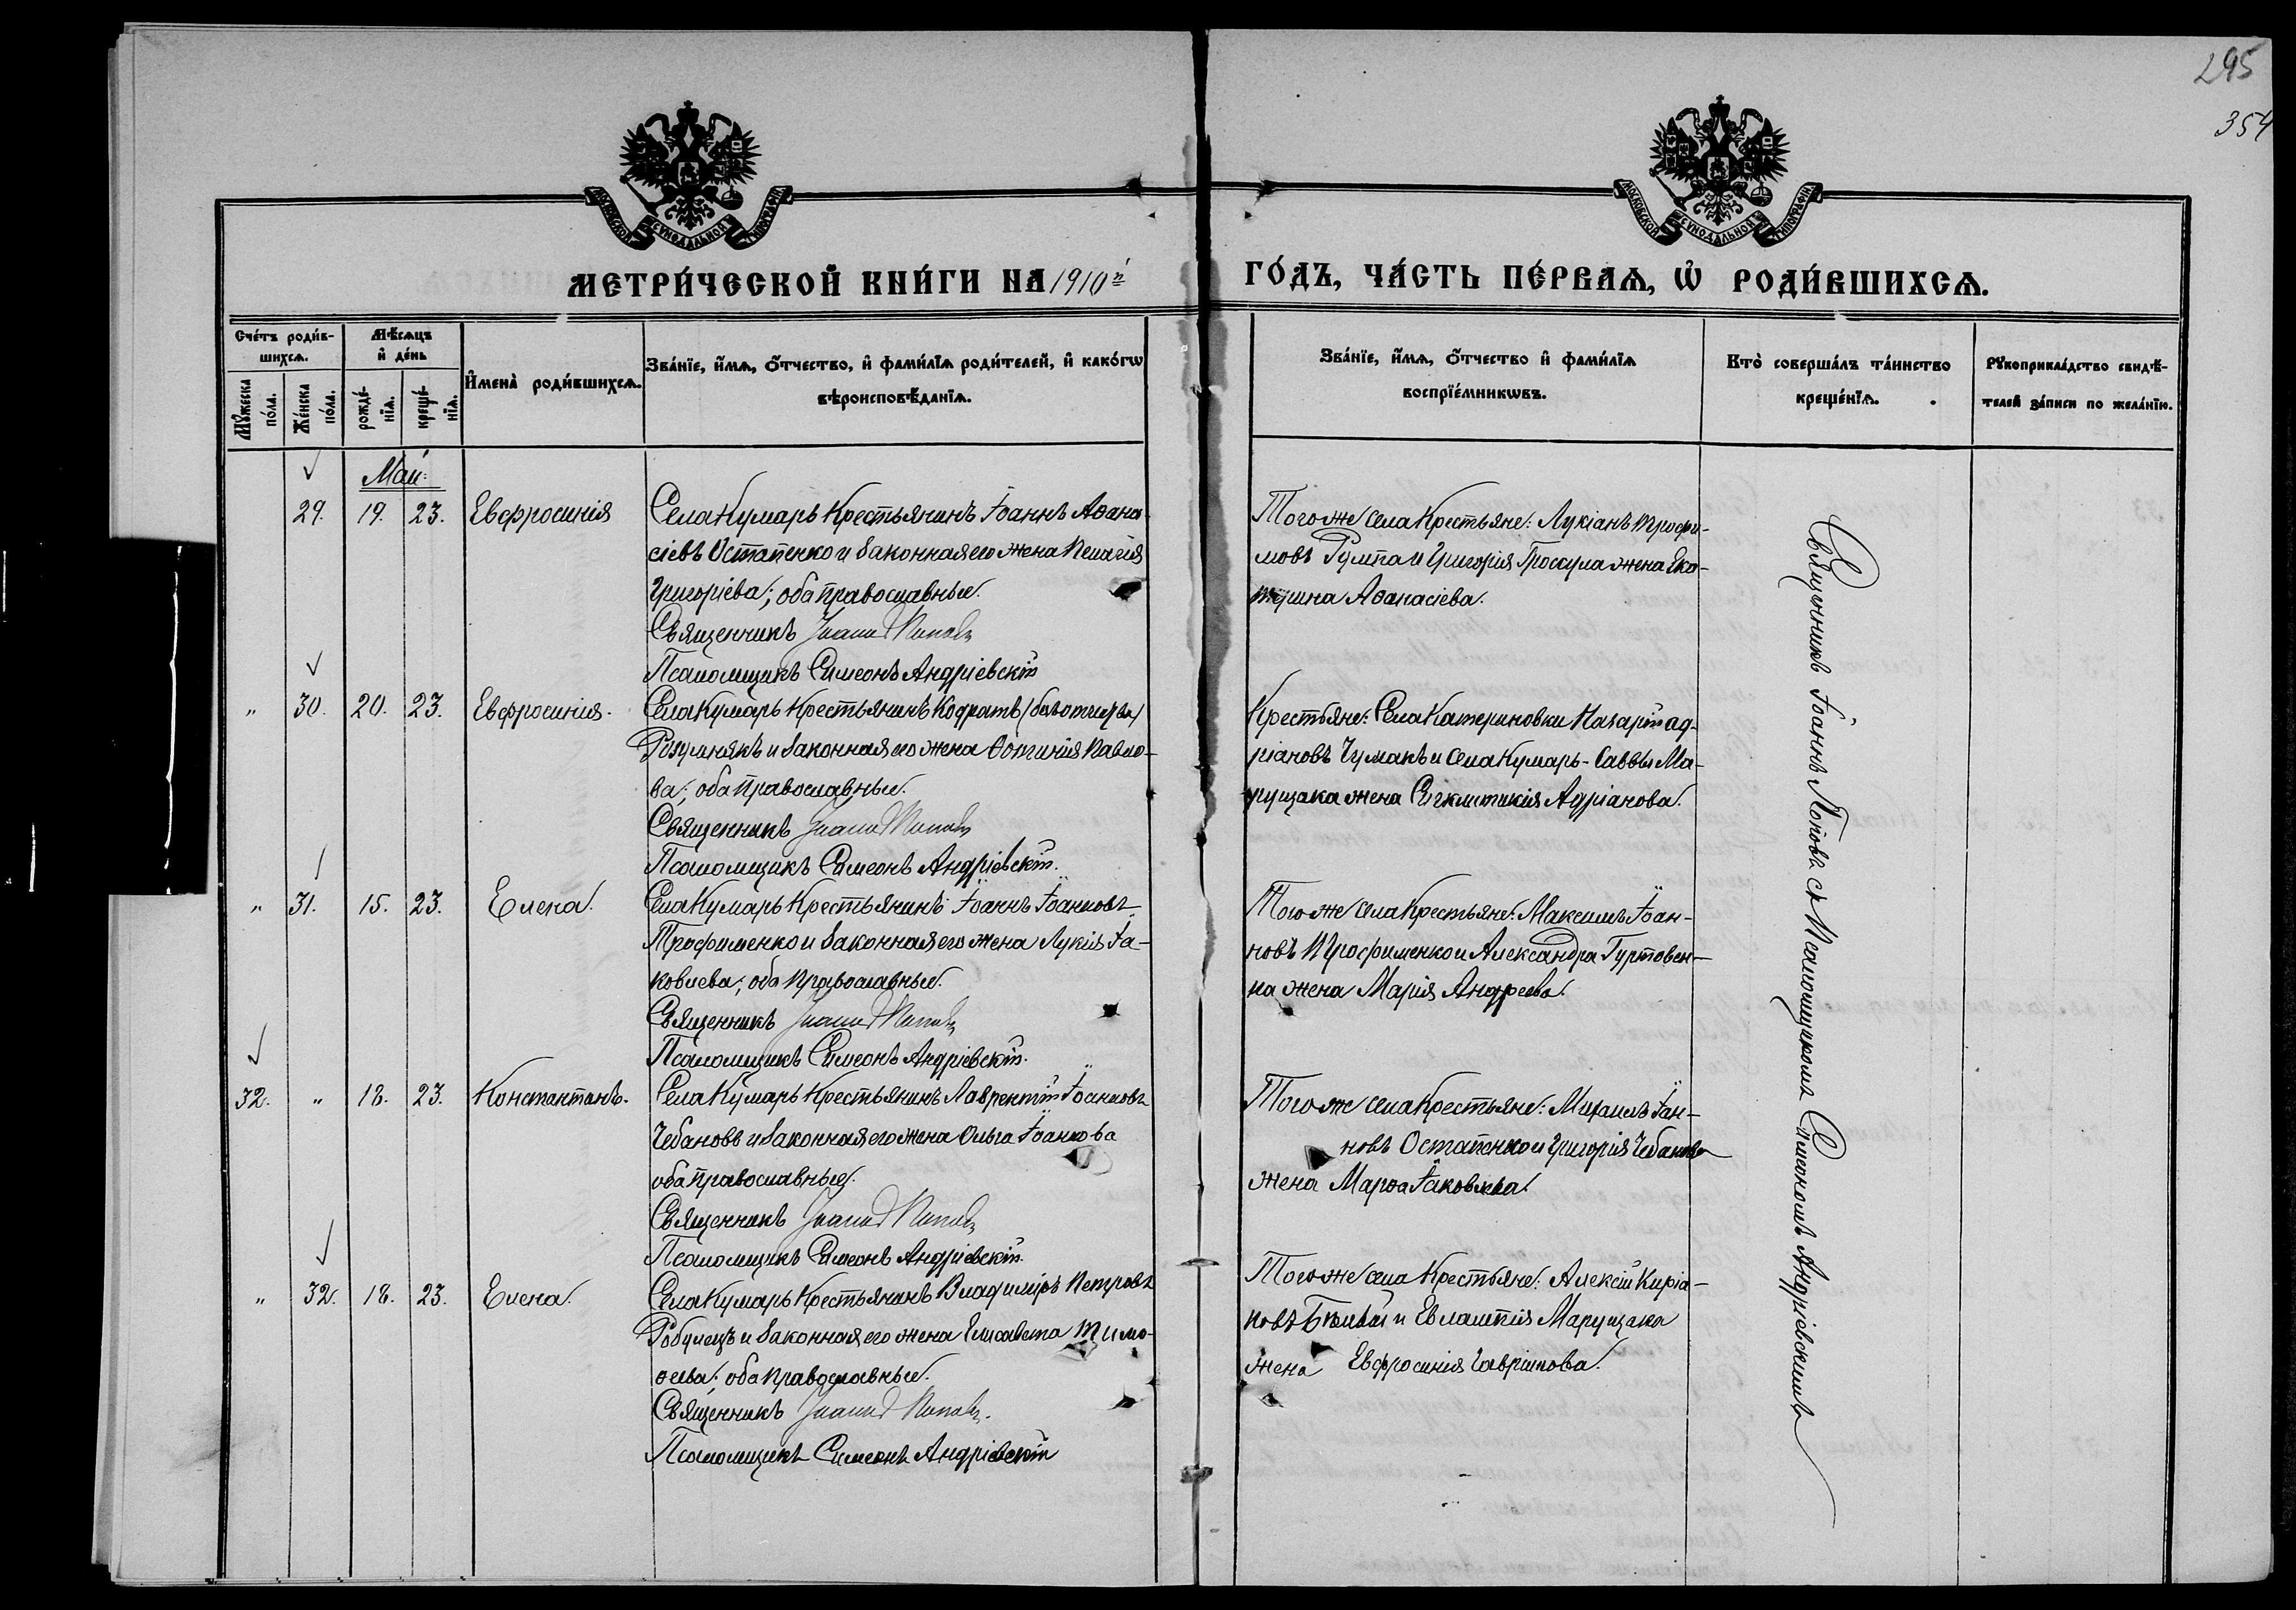 295
354
МОСКОВСКОЙ СѴНОДАЛЬНОЙ ТИПОГРАФІИ
МОСКОВСКОЙ СѴНОДАЛЬНОЙ ТИПОГРАФІИ
МЕТРИ́ЧЕСКОЙ КНИ́ГИ НА 1910й ГО́ДЪ, ЧА́СТЬ ПЕ́РВАѦ, Ѽ РОДИ́ВШИХСѦ.
Сче́тъ роди́в-
шихсѧ.
Мѣ́сѧцъ
и҆ де́нь
Мꙋ́жеска
по́ла.
Же́нска
по́ла.
рожде́-
нїѧ.
креще́-
нїѧ.
И҆мена̀ роди́вшихсѧ.
Зва́нїе, и҆́мѧ, ѻ҆́тчество, и҆ фами́лїѧ роди́телей, и҆ како́гѡ
вѣроисповѣ́данїѧ.
Зва́нїе, и҆́мѧ, ѻ҆́тчество и҆ фами́лїѧ
воспрїе́мникѡвъ.
Кто̀ соверша́лъ та́инство
креще́нїѧ.
Рꙋкоприкла́дство свидѣ́-
телей за́писи по жела́нїю.
Май:
29. 19. 23. Евфросинія
Села Кумарь Крестьянинъ Іоаннъ Аѳана-
сіевъ Остапенко и законная его жена Пелагія
Григоріева; оба православные.
Священникъ Іоаннъ Поповъ
Псаломщикъ Симеонъ Андріевскій
Того же села Крестьяне: Лукіанъ Трофи-
мовъ и Григорія жена Ека-
терина Аѳанасіева.
" 30. 20. 23. Евфросинія.
Села Кумарь Крестьянинъ Кодратъ
и законная его жена Павло-
ва; оба православные.
Священникъ Іоаннъ Поповъ
Псаломщикъ Симеонъ Андріевскій.
Крестьяне: Села Катериновки Назарій Ад-
ріановъ Чумакъ и села Кумарь - Саввы Ма-
рущака жена Сигклитикія Адріанова.
" 31. 15. 23. Елена.
Села Кумарь Крестьянинъ Іоаннъ Іоанновъ
Трофименко и законная его жена Лукія Іа-
ковлева; оба православные.
Священникъ Іоаннъ Поповъ
Псаломщикъ Симеонъ Андріевскій.
Того же села Крестьяне: Максимъ Іоан-
новъ Трофименко и Александра Гуртовен-
ка жена Марія Андреева.
32. " 18. 23. Константинъ.
Села Кумарь Крестьянинъ Лаврентій Іоанновъ
Чебановъ и законная его жена Ольга Іоаннова
оба православные.
Священникъ Іоаннъ Поповъ
Псаломщикъ Симеонъ Андріевскій.
Того же села Крестьяне: Михаилъ Іоан-
новъ Остапенко и Григорія Чебанова
жена Марѳа Іаковлева.
" 32. 18. 23. Елена.
Села Кумарь Крестьянинъ Владиміръ Петровъ
и законная его жена Елисавета Тимо-
ѳеева; оба православные.
Священникъ Іоаннъ Поповъ.
Псаломщикъ Симеонъ Андріевскій
Того же села Крестьяне: Алексій Киріа-
новъ и Евлампія Марущака
жена Евфросинія Гавріилова.
Священникъ Іоаннъ Поповъ съ Псаломщикомъ Симеономъ Андріевскимъ